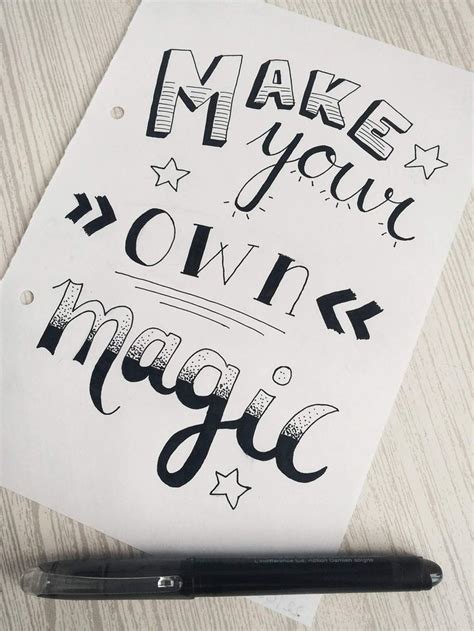 MAKE
your
OWN
magic